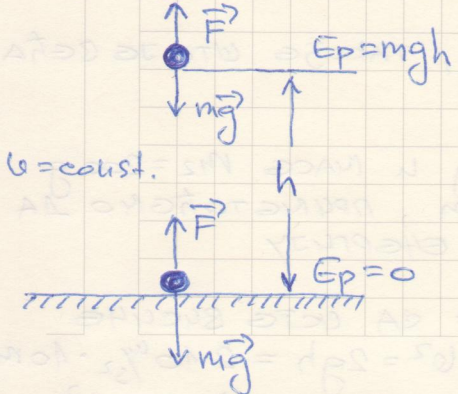 F⃗
Ep=mgh
mg⃗
v=const.
h
F⃗
Ep=0
mg⃗